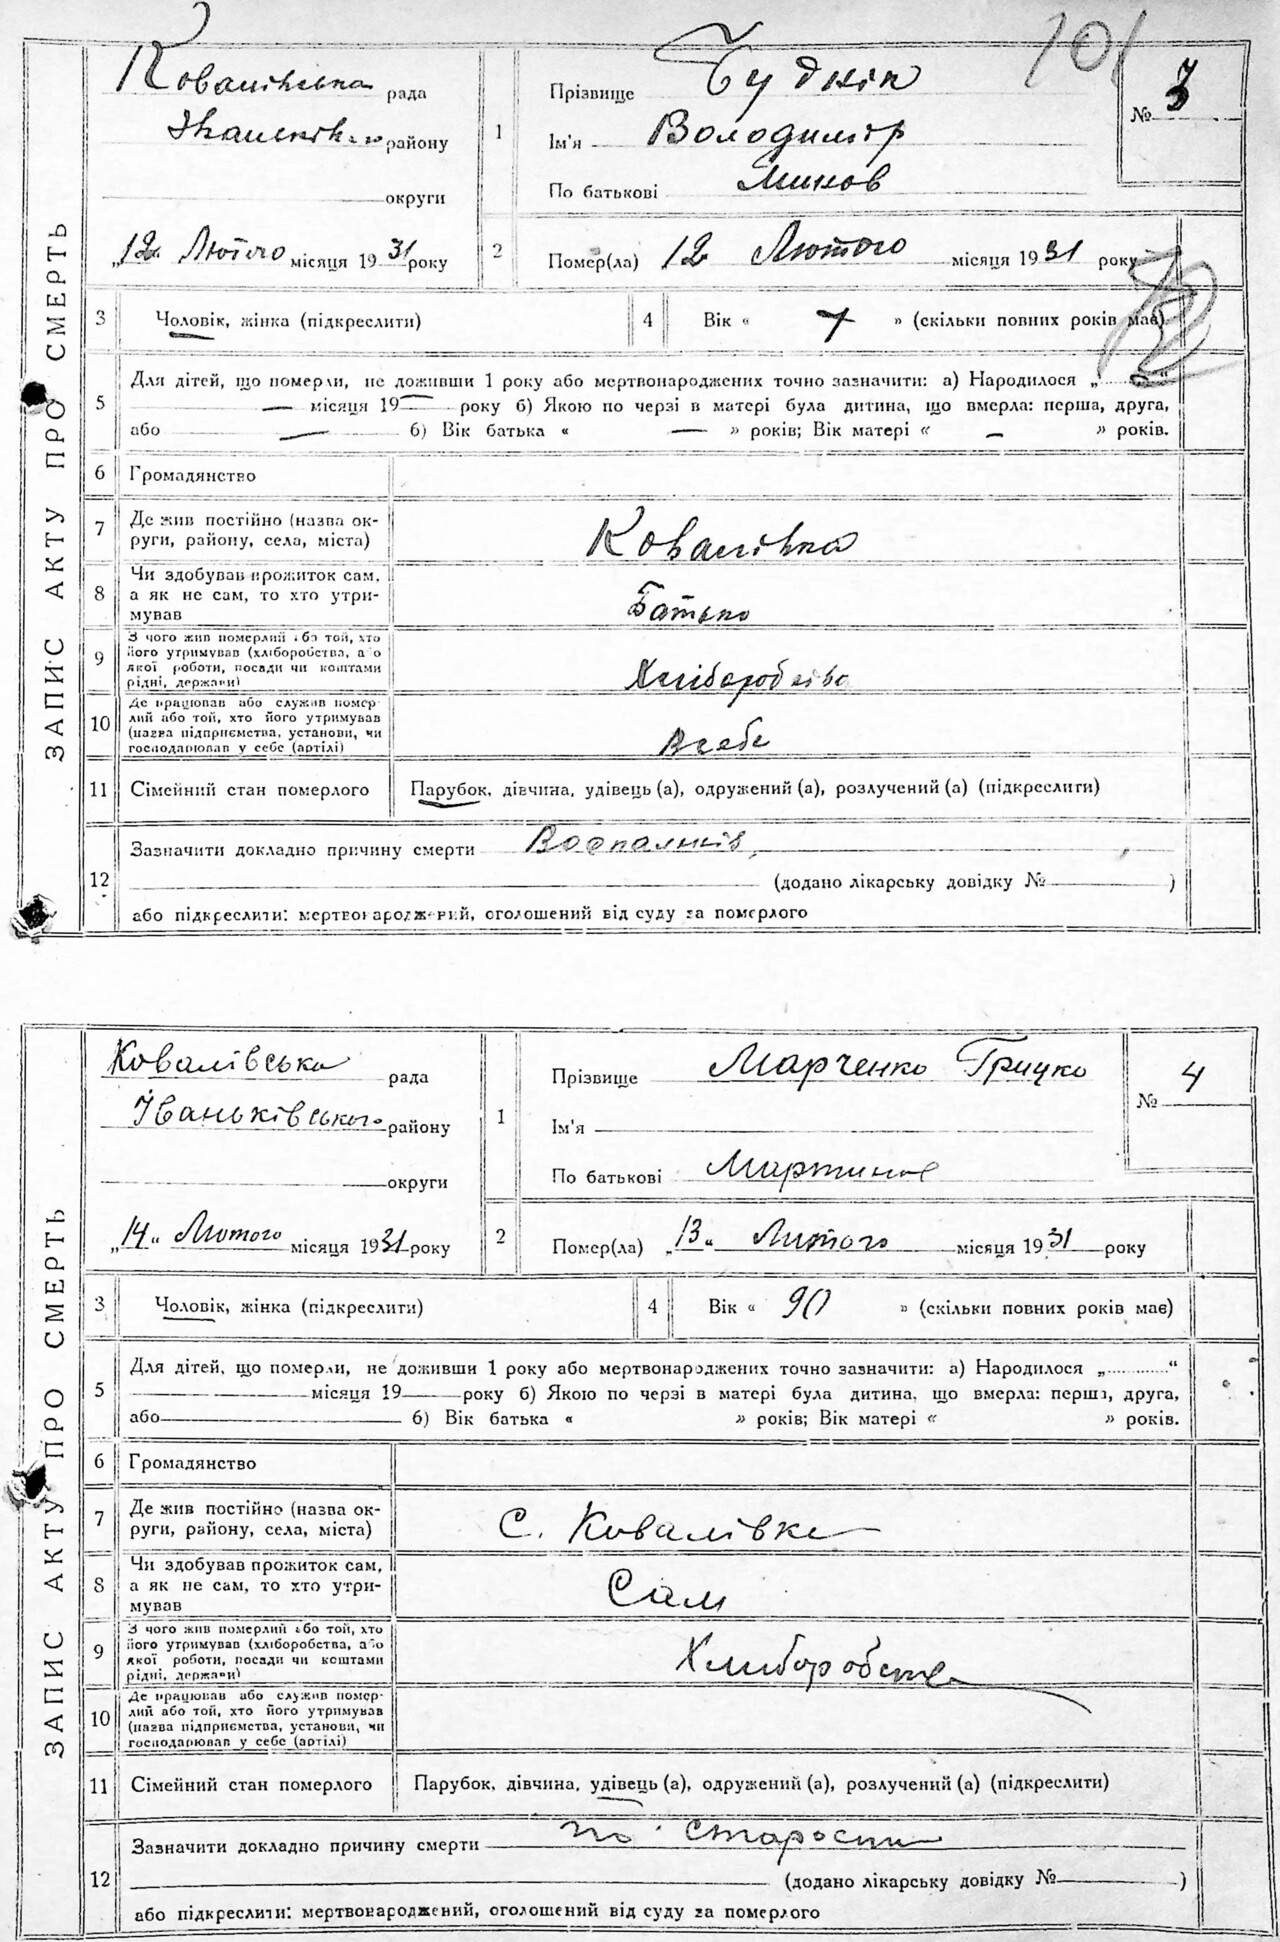 101
ЗАПИС АКТУ ПРО СМЕРТЬ
Ковалівська рада
району
округи
„12„ Лютого місяця 1931 року
1
Прізвище Будник
Ім'я Володимір
По батькові
№ 3
2
Помер(ла) 12 Лютого місяця 1931 року
3 Чоловік, жінка (підкреслити)
4 Вік « 7 » (скільки повних років має)
5 Для дітей, що померли, не доживши 1 року або мертвонароджених точно зазначити: а) Народилося „ “
— місяця 19— року б) Якою по черзі в матері була дитина, що вмерла: перша, друга,
або — б) Вік батька « — » років; Вік матері « — » років.
6 Громадянство
7 Де жив постійно (назва ок-
руги, району, села, міста) Ковалівка
8 Чи здобував прожиток сам,
а як не сам, то хто утри-
мував Батько
9 З чого жив померлий або той, хто
його утримував (хліборобства, або
якої роботи, посади чи коштами
рідні, держави) Хліборобство
10 Де працював або служив помер-
лий або той, хто його утримував
(назва підприємства, установи, чи
господарював у себе (артілі) В себе
11 Сімейний стан померлого Парубок, дівчина, удівець (а), одружений (а), розлучений (а) (підкреслити)
12 Зазначити докладно причину смерти
(додано лікарську довідку № )
або підкреслити: мертвонароджений, оголошений від суду за померлого
ЗАПИС АКТУ ПРО СМЕРТЬ
Ковалівська рада
Іваньківського району
округи
„14„ Лютого місяця 1931 року
1
Прізвище Марченко Грицко
Ім'я
По батькові Мартинов
№ 4
2
Помер(ла) „13„ Лютого місяця 1931 року
3 Чоловік, жінка (підкреслити)
4 Вік « 90 » (скільки повних років має)
5 Для дітей, що померли, не доживши 1 року або мертвонароджених точно зазначити: а) Народилося „ “
місяця 19 року б) Якою по черзі в матері була дитина, що вмерла: перша, друга,
або б) Вік батька « » років; Вік матері « » років.
6 Громадянство
7 Де жив постійно (назва ок-
руги, району, села, міста) С. Ковалівка
8 Чи здобував прожиток сам,
а як не сам, то хто утри-
мував Сам
9 З чого жив померлий або той, хто
його утримував (хліборобства, або
якої роботи, посади чи коштами
рідні, держави) Хлиборобство
10 Де працював або служив помер-
лий або той, хто його утримував
(назва підприємства, установи, чи
господарював у себе (артілі)
11 Сімейний стан померлого Парубок, дівчина, удівець (а), одружений (а), розлучений (а) (підкреслити)
12 Зазначити докладно причину смерти по старости
(додано лікарську довідку № )
або підкреслити: мертвонароджений, оголошений від суду за померлого